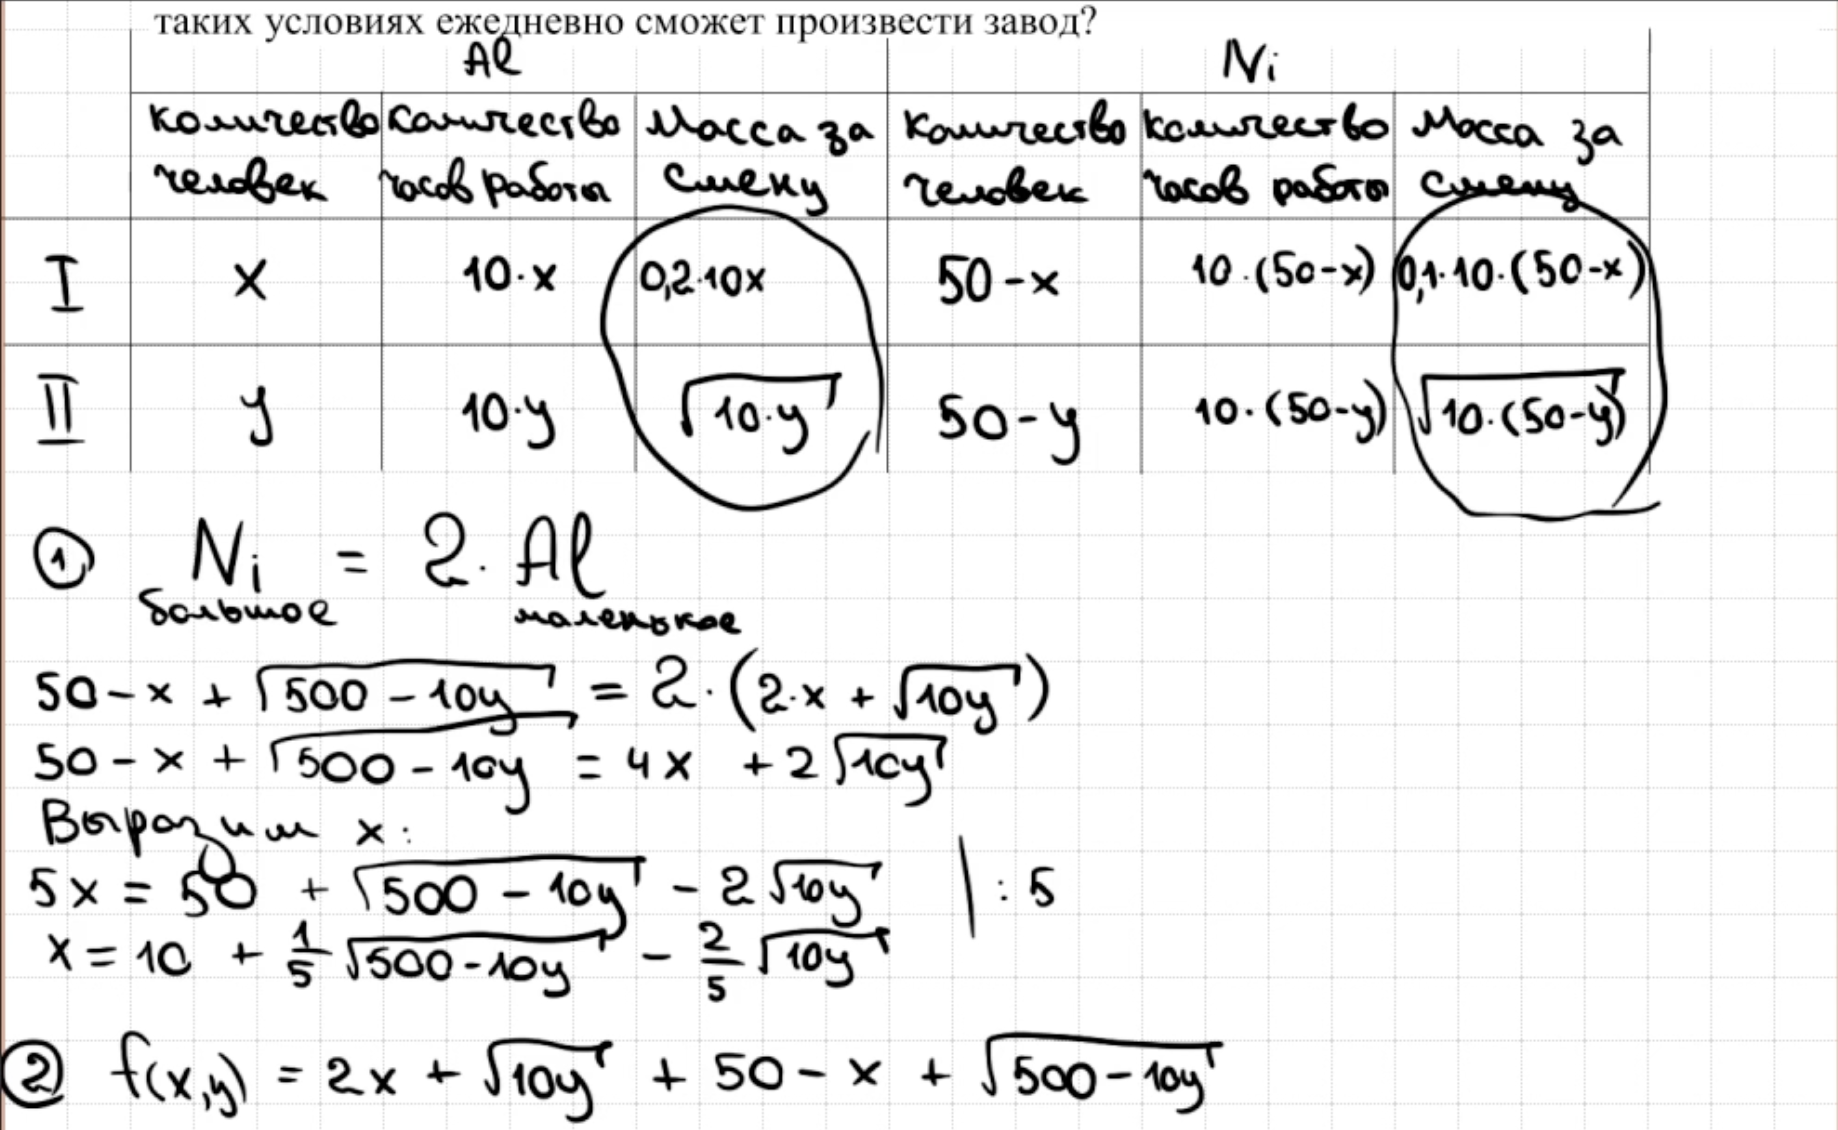 таких условиях ежедневно сможет произвести завод?
Al Ni
количество человек количество часов работы Масса за смену количество человек количество часов работы Масса за смену
I x 10·x 0,2·10x 50-x 10·(50-x) 0,1·10·(50-x)
II y 10·y √(10·y) 50-y 10·(50-y) √(10·(50-y))
① Ni = 2· Al
большое маленькое
50-x + √(500-10y) = 2·(2·x + √(10y))
50-x + √(500-10y) = 4x + 2√(10y)
Выразим x:
5x = 50 + √(500-10y) - 2√(10y) | :5
x = 10 + 1/5 √(500-10y) - 2/5 √(10y)
② f(x,y) = 2x + √(10y) + 50-x + √(500-10y)